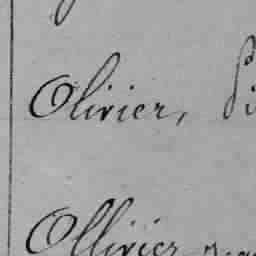 Olivier, Pi
Ollivier